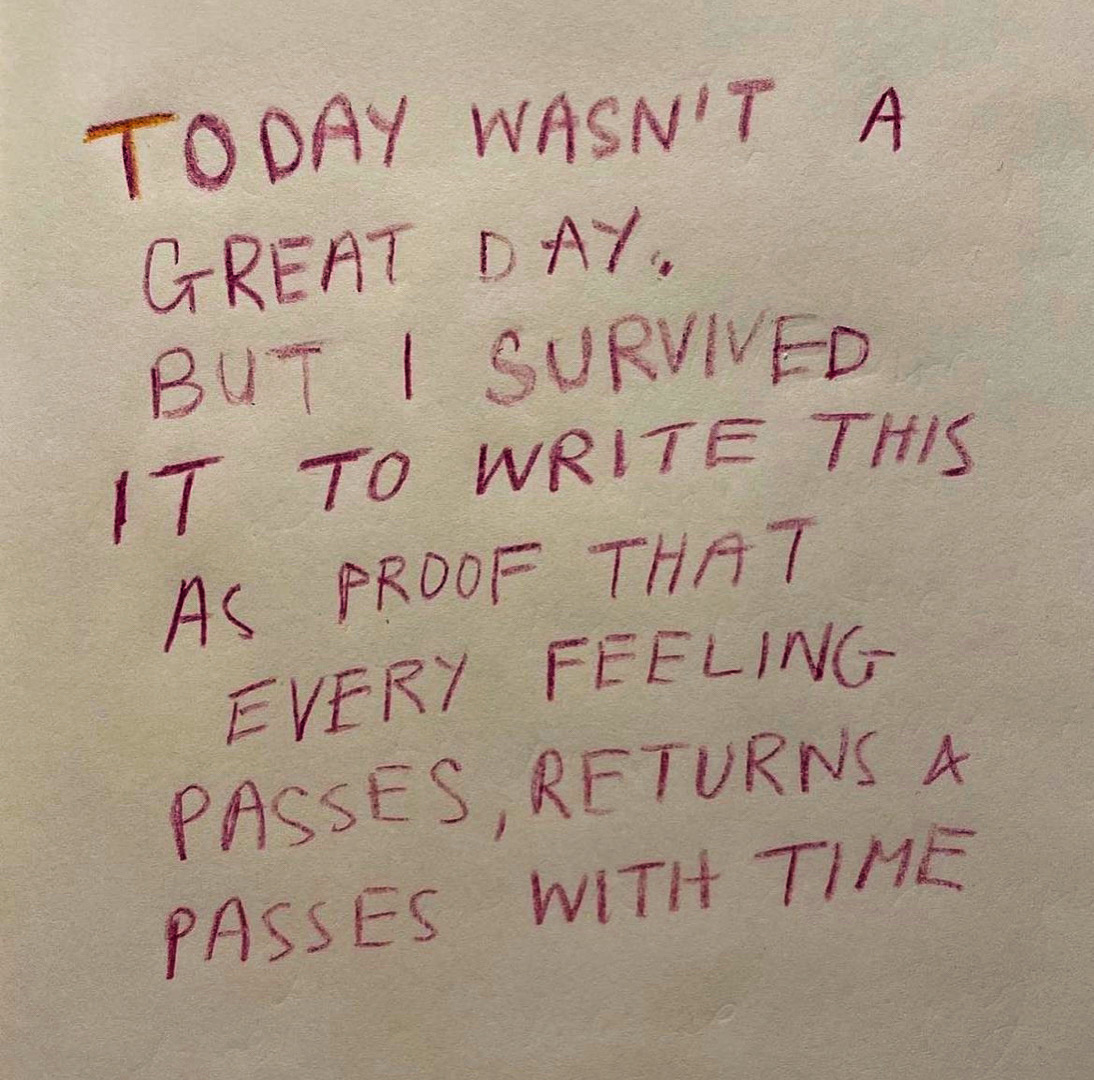 TODAY WASN'T A
GREAT DAY.
BUT I SURVIVED
IT TO WRITE THIS
AS PROOF THAT
EVERY FEELING
PASSES, RETURNS A
PASSES WITH TIME